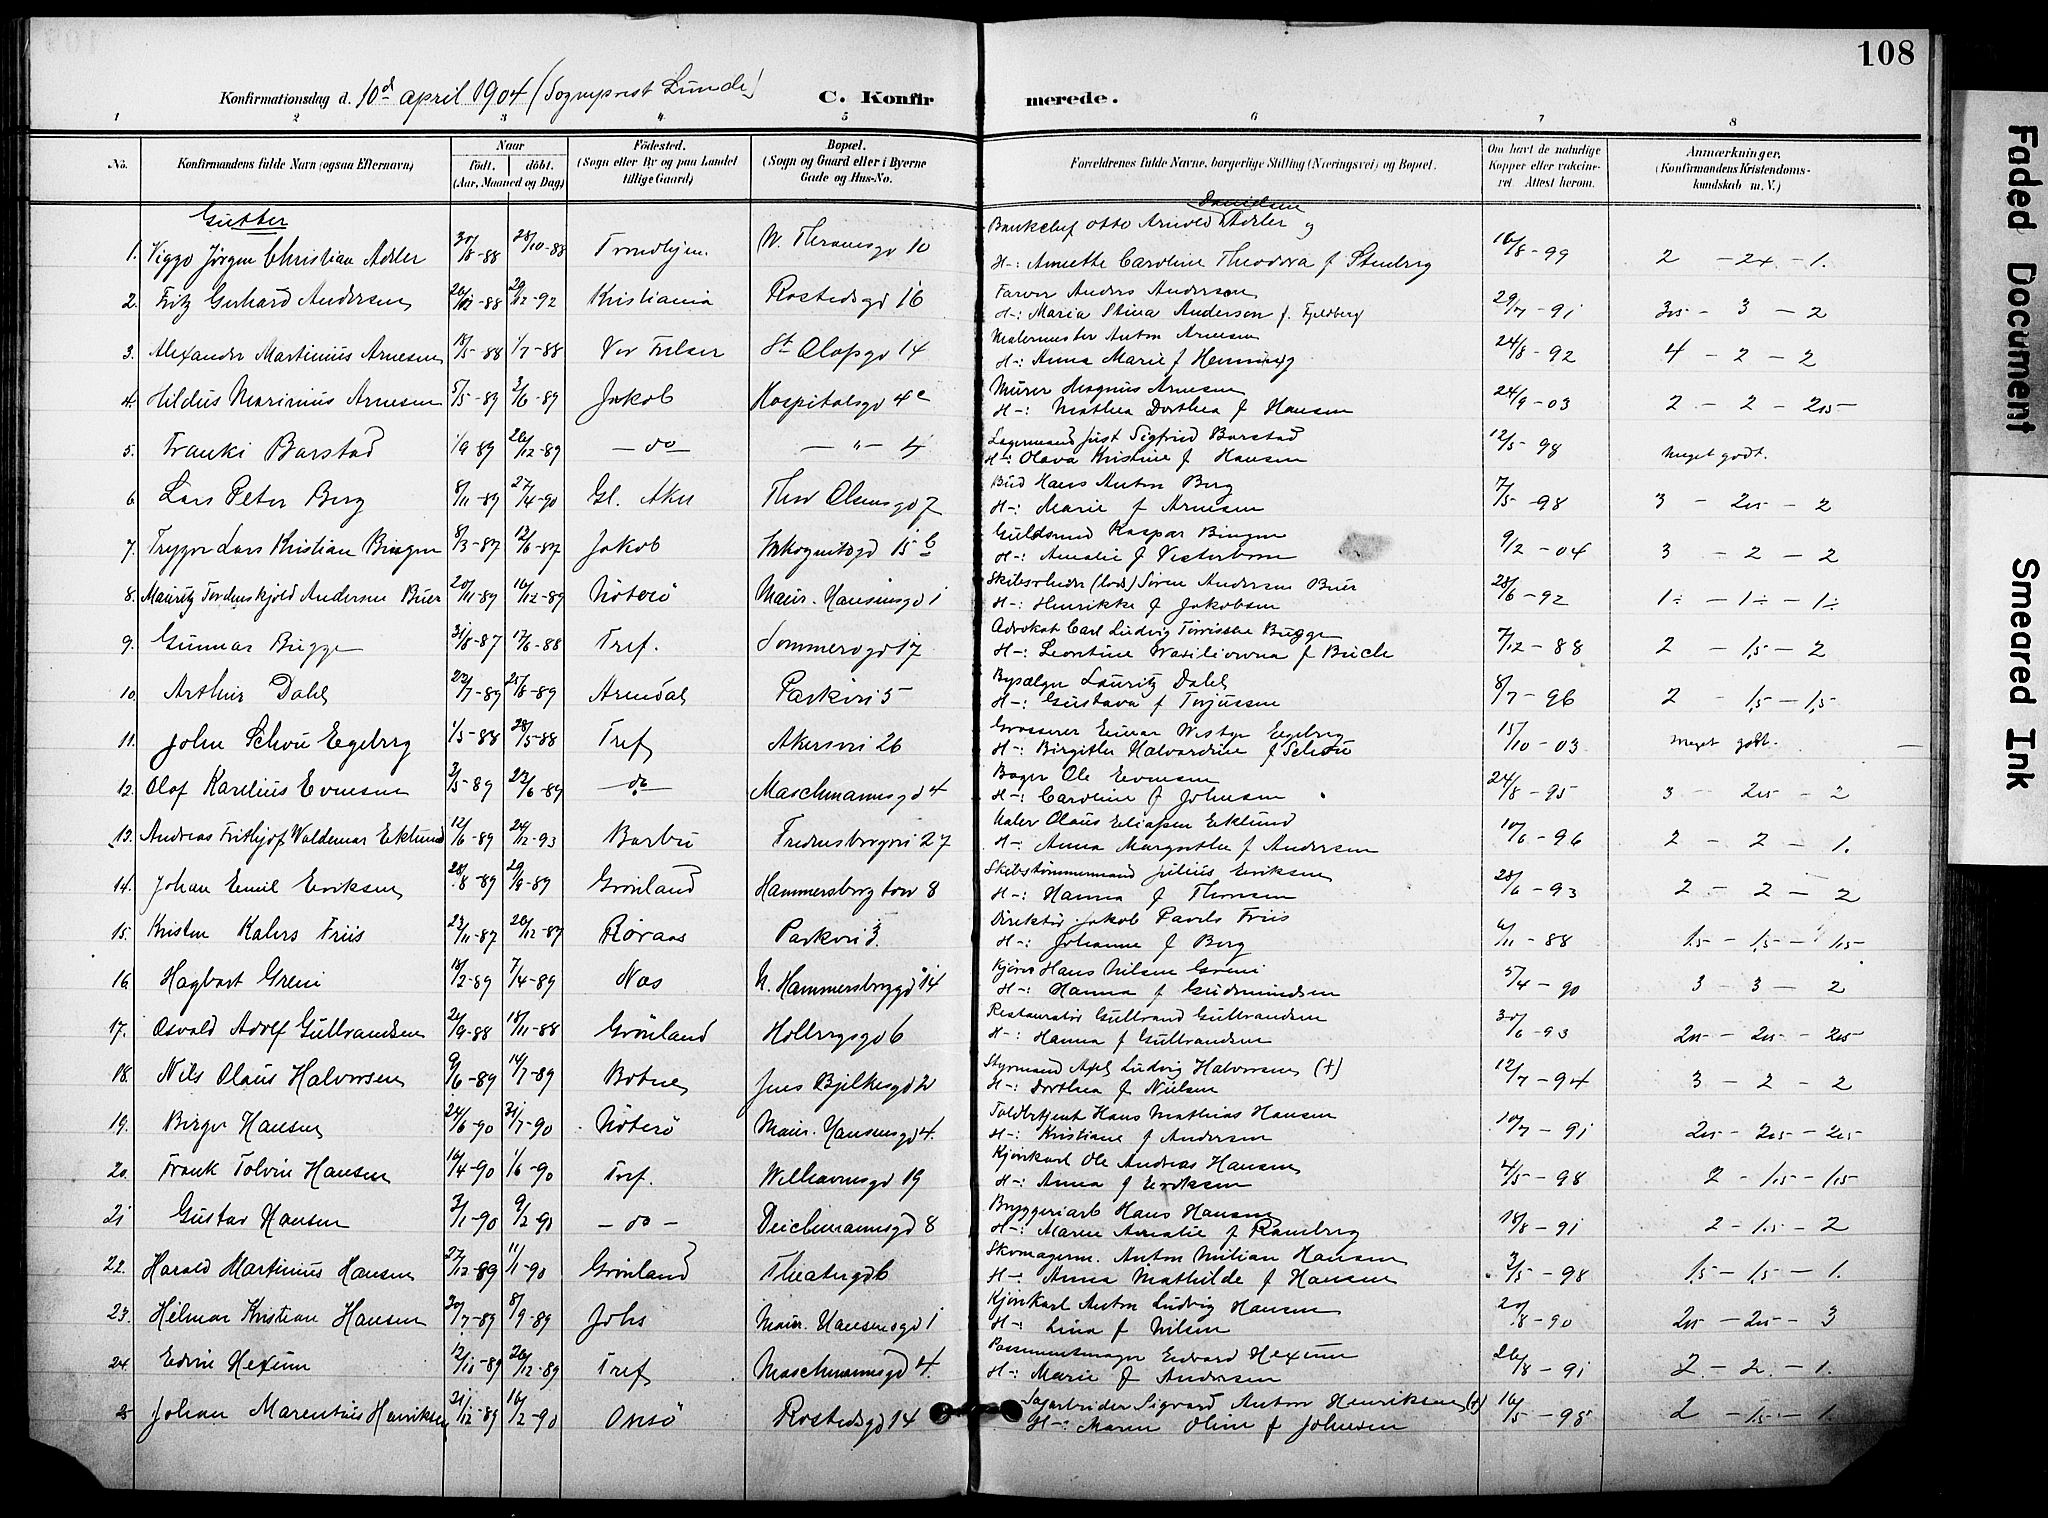 108
Konfirmationsdag d. 10d april 1904 (Sogneprest Lunde) C. Konfirmerede.
1 2 3 4 5 6 7 8
No. Konfirmandens fulde Navn (ogsaa Efternavn) Naar født. døbt. (Aar, Maaned og Dag) Fødested. (Sogn eller By og paa Landet tillige Gaard) Bopæl. (Sogn og Gaard eller i Byerne Gade og Hus-No. Forældrenes fulde Navne, borgerlige Stilling (Næringsvei) og Bopæl. Om havt de naturlige Kopper eller vakcineret. Attest herom. Anmærkninger. (Konfirmandens Kristendomskundskab m. V.)
Gutter
1. Viggo Jörgen Christian Adler 30/8-88 28/10-88 Trondhjem W. Thranesgd 10 Bankchef Otto Arnold Danielsen Adler og
H-: Annette Caroline Theodora f Stenberg 16/8-99 2 - 2+ - 1.
2. Fritz Gerhard Andersen 29/12-92 Kristiania Rostedsgd 16 Farver Anders Andersen
H-: Maria Stina Anderson f. Fjeldberg 29/7-91 2,5 - 3 - 2
3. Alexander Martinius Arnesen 18/5-88 1/7-88 Vor Frelser St Olafsgd 14 Malermester Anton Arnesen
H-: Anna Marie f Henning 24/8-92 4 - 2 - 2
4. Hildus Marinius Arnesen 5/5-89 3/6-89 Jakob Hospitalsgd 4c Murer Magnus Arnesen
H-: Mathea Dorthea f Hansen 24/9-03 2 - 2 - 2,5
5. Franki Barstad 1/9-89 26/12-89 - do - - " - 4 Lagermand Just Sigfried Barstad
H-: Olava Kristine f Hansen 12/5-98 Meget godt.
6. Lars Peter Berg 8/11-89 27/4-90 Gl. Aker Thv Olsensgd 7 Bud Hans Anton Berg
H-: Marie f Arnesen 7/5-98 3 - 2,5 - 2
7. Trygve Lars Kristian Bingen 8/3-87 12/6-87 Jakob Inkognitogd 15b Guldsmed Kaspar Bingen
H-: Amalie f Vesterbom 9/2-04 3 - 2 - 2
8. Mauritz Tordenskjold Andersen Buer 20/11-89 16/12-89 Nöterö Maur. Hansensgd 1 Skibsrheder (lods) Sören Andersen Buer
H-: Henrikke f Jakobsen 28/6-92 1÷ - 1÷ - 1÷
9. Gunnar Bugge 31/8-87 17/6-88 Tref. Sommerogd 17 Advokat Carl Ludvig Bugge
H-: Leontine Wasiliowna f Buch 7/12-88 2 - 1,5 - 2
10. Arthur Dahl 22/7-89 25/8-89 Arendal Parkvei 5 Bysælger Lauritz Dahl
H-: Gustava f Torjussen 8/7-96 2 - 1,5 - 1,5
11. John Schou Egeberg 1/3-88 28/5-88 Tref Akersvei 26 Grosserer Einar Westye Egeberg
H-: Birgithe Halvardine f Schou 15/10-03 Meget godt.
12. Olaf Karelius Evensen 3/5-89 23/6-89 - do - Maschmannsgd 4 Bager Ole Evensen
H-: Caroline f Johnsen 24/8-95 3 - 2,5 - 2
13. Andreas Frithjof Waldemar Eklund 12/6-89 24/12-93 Barbu Fredensborgvei 27 Maler Claus Eliasen Eklund
H-: Anna Margrethe f Andersen 10/6-96 2 - 2 - 1.
14. Johan Emil Eriksen 28/8-89 29/9-89 Grönland Hammersborg torv 8 Skibstömmermand Julius Eriksen
H-: Hanna f Thoresen 28/6-93 2 - 2 - 2
15. Kristen Kahrs Friis 23/11-87 26/12-87 Röraas Parkvei 3. Direktör Jakob Pavels Friis
H-: Johanne f Berg 6/11-88 1,5 - 1,5 - 1,5
16. Hagbart Greni 18/2-89 7/4-89 Nes N. Hammersborggd 14 Kjörer Hans Nilsen Greni
H-: Hanna f Gudmundsen 5/4-90 3 - 3 - 2
17. Osvald Adolf Gulbrandsen 21/9-88 18/11-88 Grönland Holbergsgd 6 Restauratör Gulbrand Gulbrandsen
H-: Hanna f Gulbrandsen 30/6-93 2,5 - 2,5 - 2,5
18. Nils Olaus Halvorsen 9/6-89 14/7-89 Botne Jens Bjelkesgd 2 Styrmand Axel Ludvig Halvorsen (+)
H-: Dorthea f Nielsen 12/7-94 3 - 2 - 2
19. Birger Hansen 24/6-90 31/7-90 Nöterö Maur. Hansensgd 4. Toldbetjent Hans Mathias Hansen
H-: Kristiane f Andersen 10/7-91 2,5 - 2,5 - 2,5
20. Frank Tolvin Hansen 16/4-90 1/6-90 Tref. Welhavensgd 19 Kjörekarl Ole Andreas Hansen
H-: Anna f Eriksen 4/5-98 2 - 1,5 - 1,5
21 Gustav Hansen 3/1-90 9/2-90 - do - Deichmannsgd 8 Bryggeriarb Hans Hansen
H-: Maren Amalie f Ramberg 18/8-91 2 - 1,5 - 2
22. Harald Martinius Hansen 27/12-89 11/1-90 Grönland Theatergd 6 Skomagerm. Anton Milian Hansen
H-: Anna Mathilde f Hansen 3/5-98 1,5 - 1,5 - 1.
23. Hilmar Kristian Hansen 30/7-89 8/9-89 Johs Maur. Hansensgd 1 Kjörekarl Anton Ludvig Hansen
H-: Lina f Nilsen 20/8-90 2,5 - 2,5 - 3
24. Edvin Hexum 12/10-89 26/12-89 Tref Maschmannsgd 4. Possementmager Edvard Hexum
H-: Marie f Andersen 26/8-91 2 - 2 - 1.
25 Johan Marentius Henriksen 21/12-89 16/2-90 Onsö Rostedsgd 14 Sagarbeider Sigvard Anton Henriksen (+)
H-: Maren Oline f Johnsen 16/5-98 2 - 1,5 - 1.
Faded Document
Smeared Ink